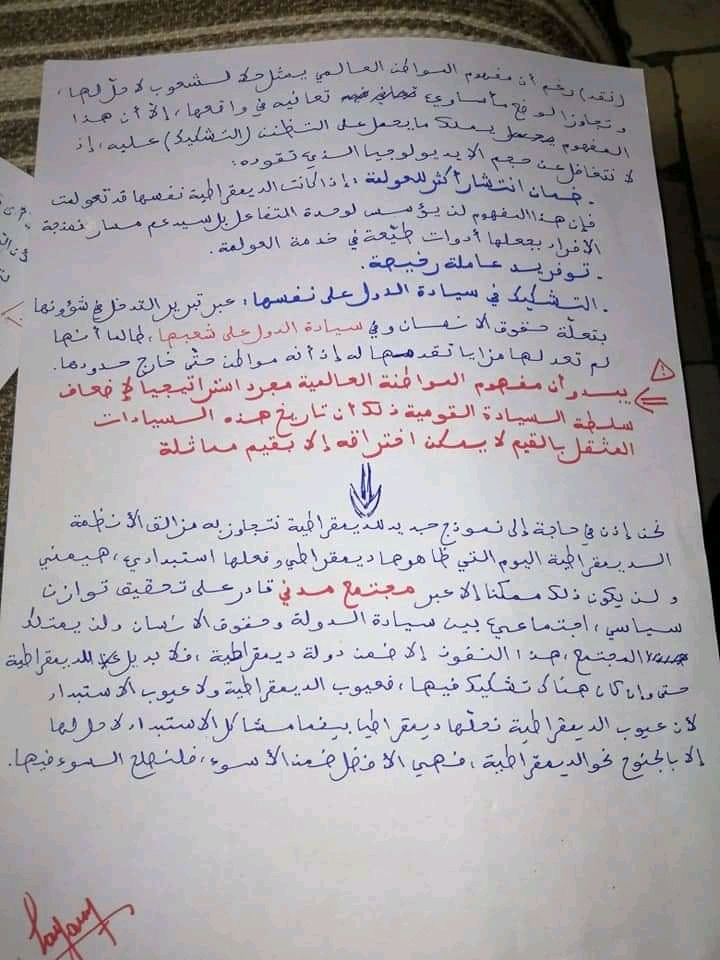 (نقد) رغم أن مفهوم المواطن العالمي يمثل حلا لشعوب لا حل لها،
و تجاوزا لوضع مأساوي تعانيه في واقعها، إلا أن هذا
المفهوم يملك ما يحمل على التظنن (التشكيك) عليه، إذ
لا نتغافل عن حجم الايديولوجيا الذي تقوده:
. ضمان انتشار أكثر للعولمة: إذا كانت الديمقراطية نفسها قد تعولمت
فإن هذا المفهوم لن يؤسس لوحدة المتفاعل بل سيدعم مسار نمذجة
الأفراد بجعلها أدوات طيّعة في خدمة العولمة.
. توفير يد عاملة رخيصة.
. التشكيك في سيادة الدول على نفسها: عبر تبرير التدخل في شؤونها
بتعلّة حقوق الانسان وفي سيادة الدول على شعبها، طالما أنها
لم تعد لها مزايا تقدمها له إذ أنه مواطن حتّى خارج حدودها.
⚠
=> يبدو أن مفهوم المواطنة العالمية مجرد استراتيجيا لإضعاف
سلطة السيادة القومية ذلك أن تاريخ هذه السيادات
المثقل بالقيم لا يمكن اختراقه إلا بقيم مماثلة
⇓
نحن إذن في حاجة إلى نموذج جديد للديمقراطية نتجاوز به مزالق الأنظمة
الديمقراطية اليوم التي ظاهرها ديمقراطي وفعلها استبدادي، هيمني
و لن يكون ذلك ممكنا إلا عبر مجتمع مدني قادر على تحقيق توازن
سياسي، اجتماعي بين سيادة الدولة وحقوق الانسان ولن يمتلك
المجتمع، هذا النفوذ إلا ضمن دولة ديمقراطية، فلا بديل للديمقراطية
حتى وإن كان هناك تشكيك فيها، فعيوب الديمقراطية ولا عيوب الاستبداد
لأن عيوب الديمقراطية نحلّها ديمقراطيا بينما مشاكل الاستبداد لا حل لها
إلا بالجنوح نحو الديمقراطية، فهي الأفضل ضمن الأسوء، فلنصلح السوء فيها.